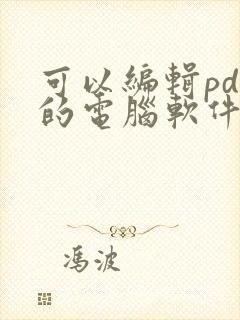 可以編輯pd
的電腦軟件
馮波